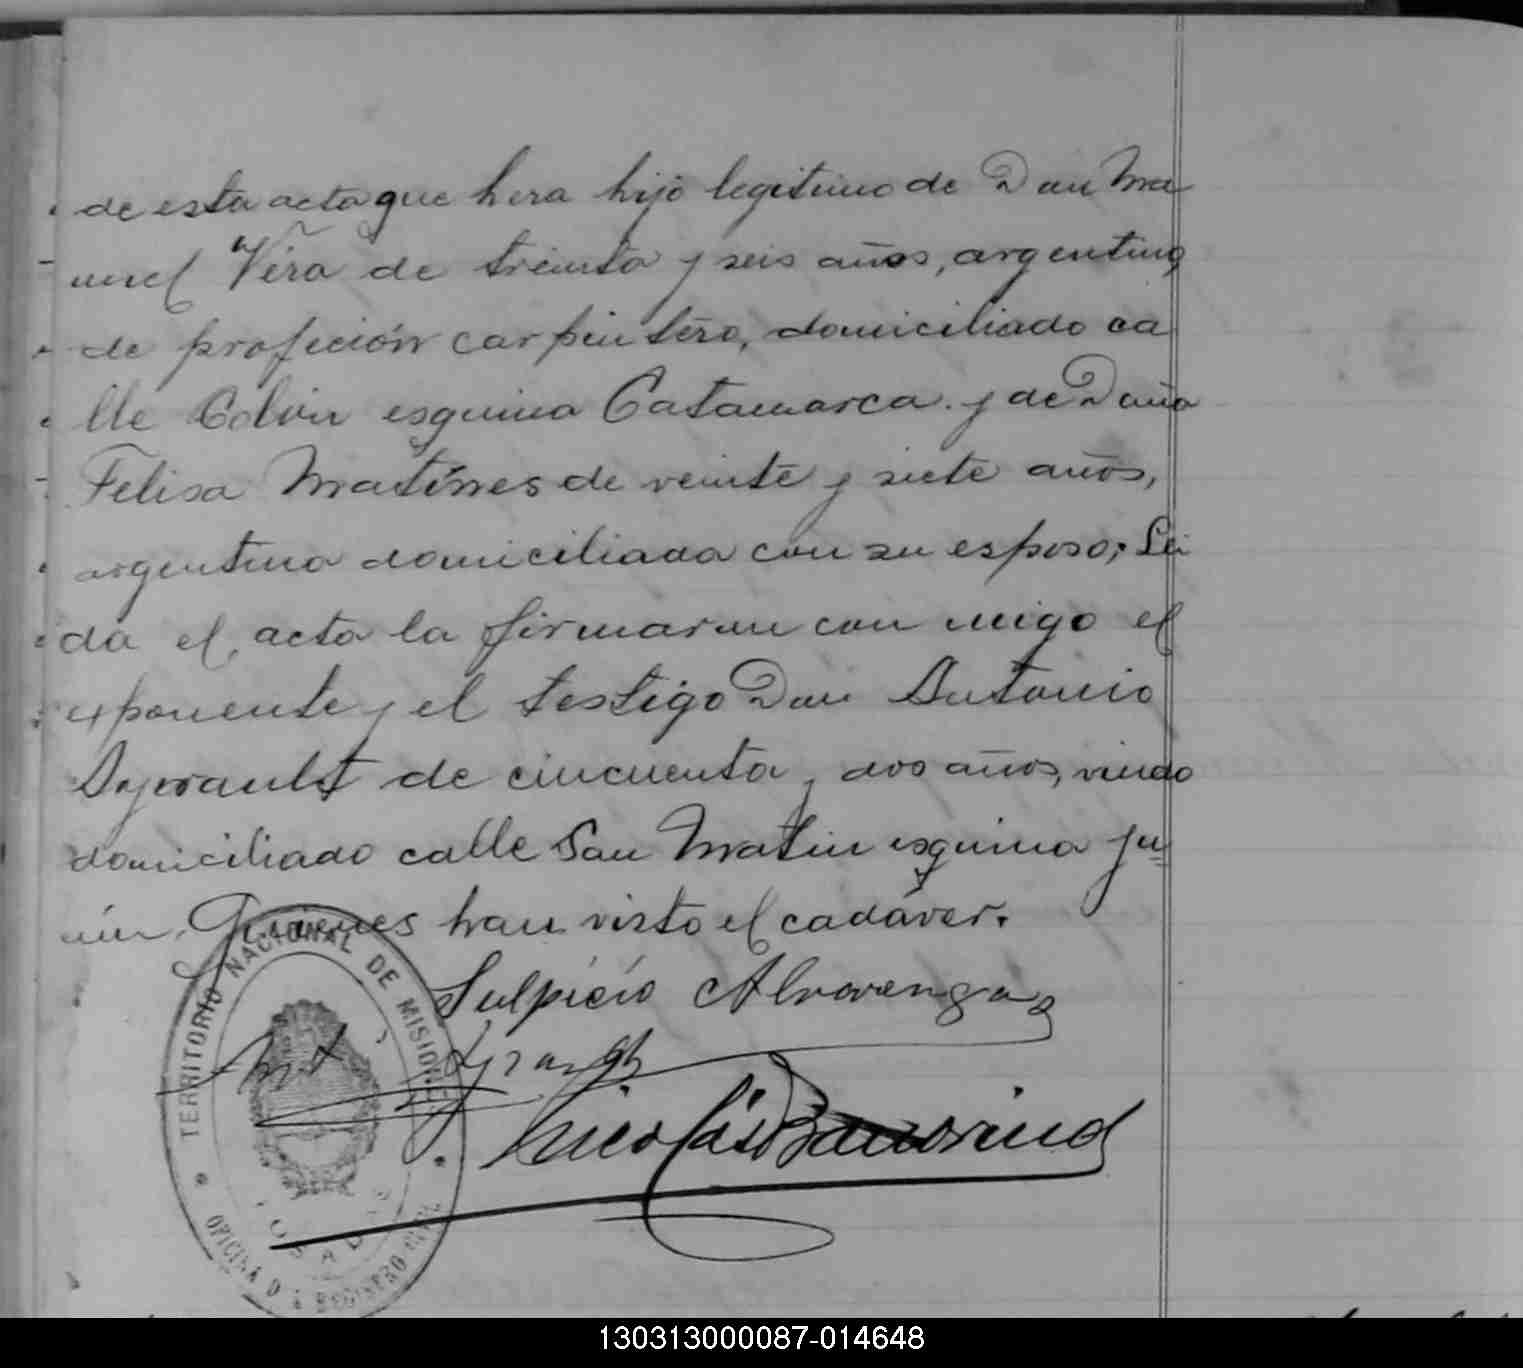 de esta acta que hera hijo legitimo de Don Ma
nuel Vera de treinta y seis años, argentino
de profición carpintero, domiciliado ca
lle Colón esquina Catamarca y de Doña
Felisa Matínes de veinte y siete años,
argentina domiciliada con su esposo; Lei
da el acta la firmaron con migo el
exponente y el testigo Don Antonio
de cincuenta y dos años, viudo
domiciliado calle San Matin esquina Ju
nin, Quienes han visto el cadáver.
Sulpicio Alvarenga
Ant
Nicolás
TERRITORIO NACIONAL DE MISIONES
POSADAS
OFICINA D L REGISTRO CIVIL
130313000087-014648